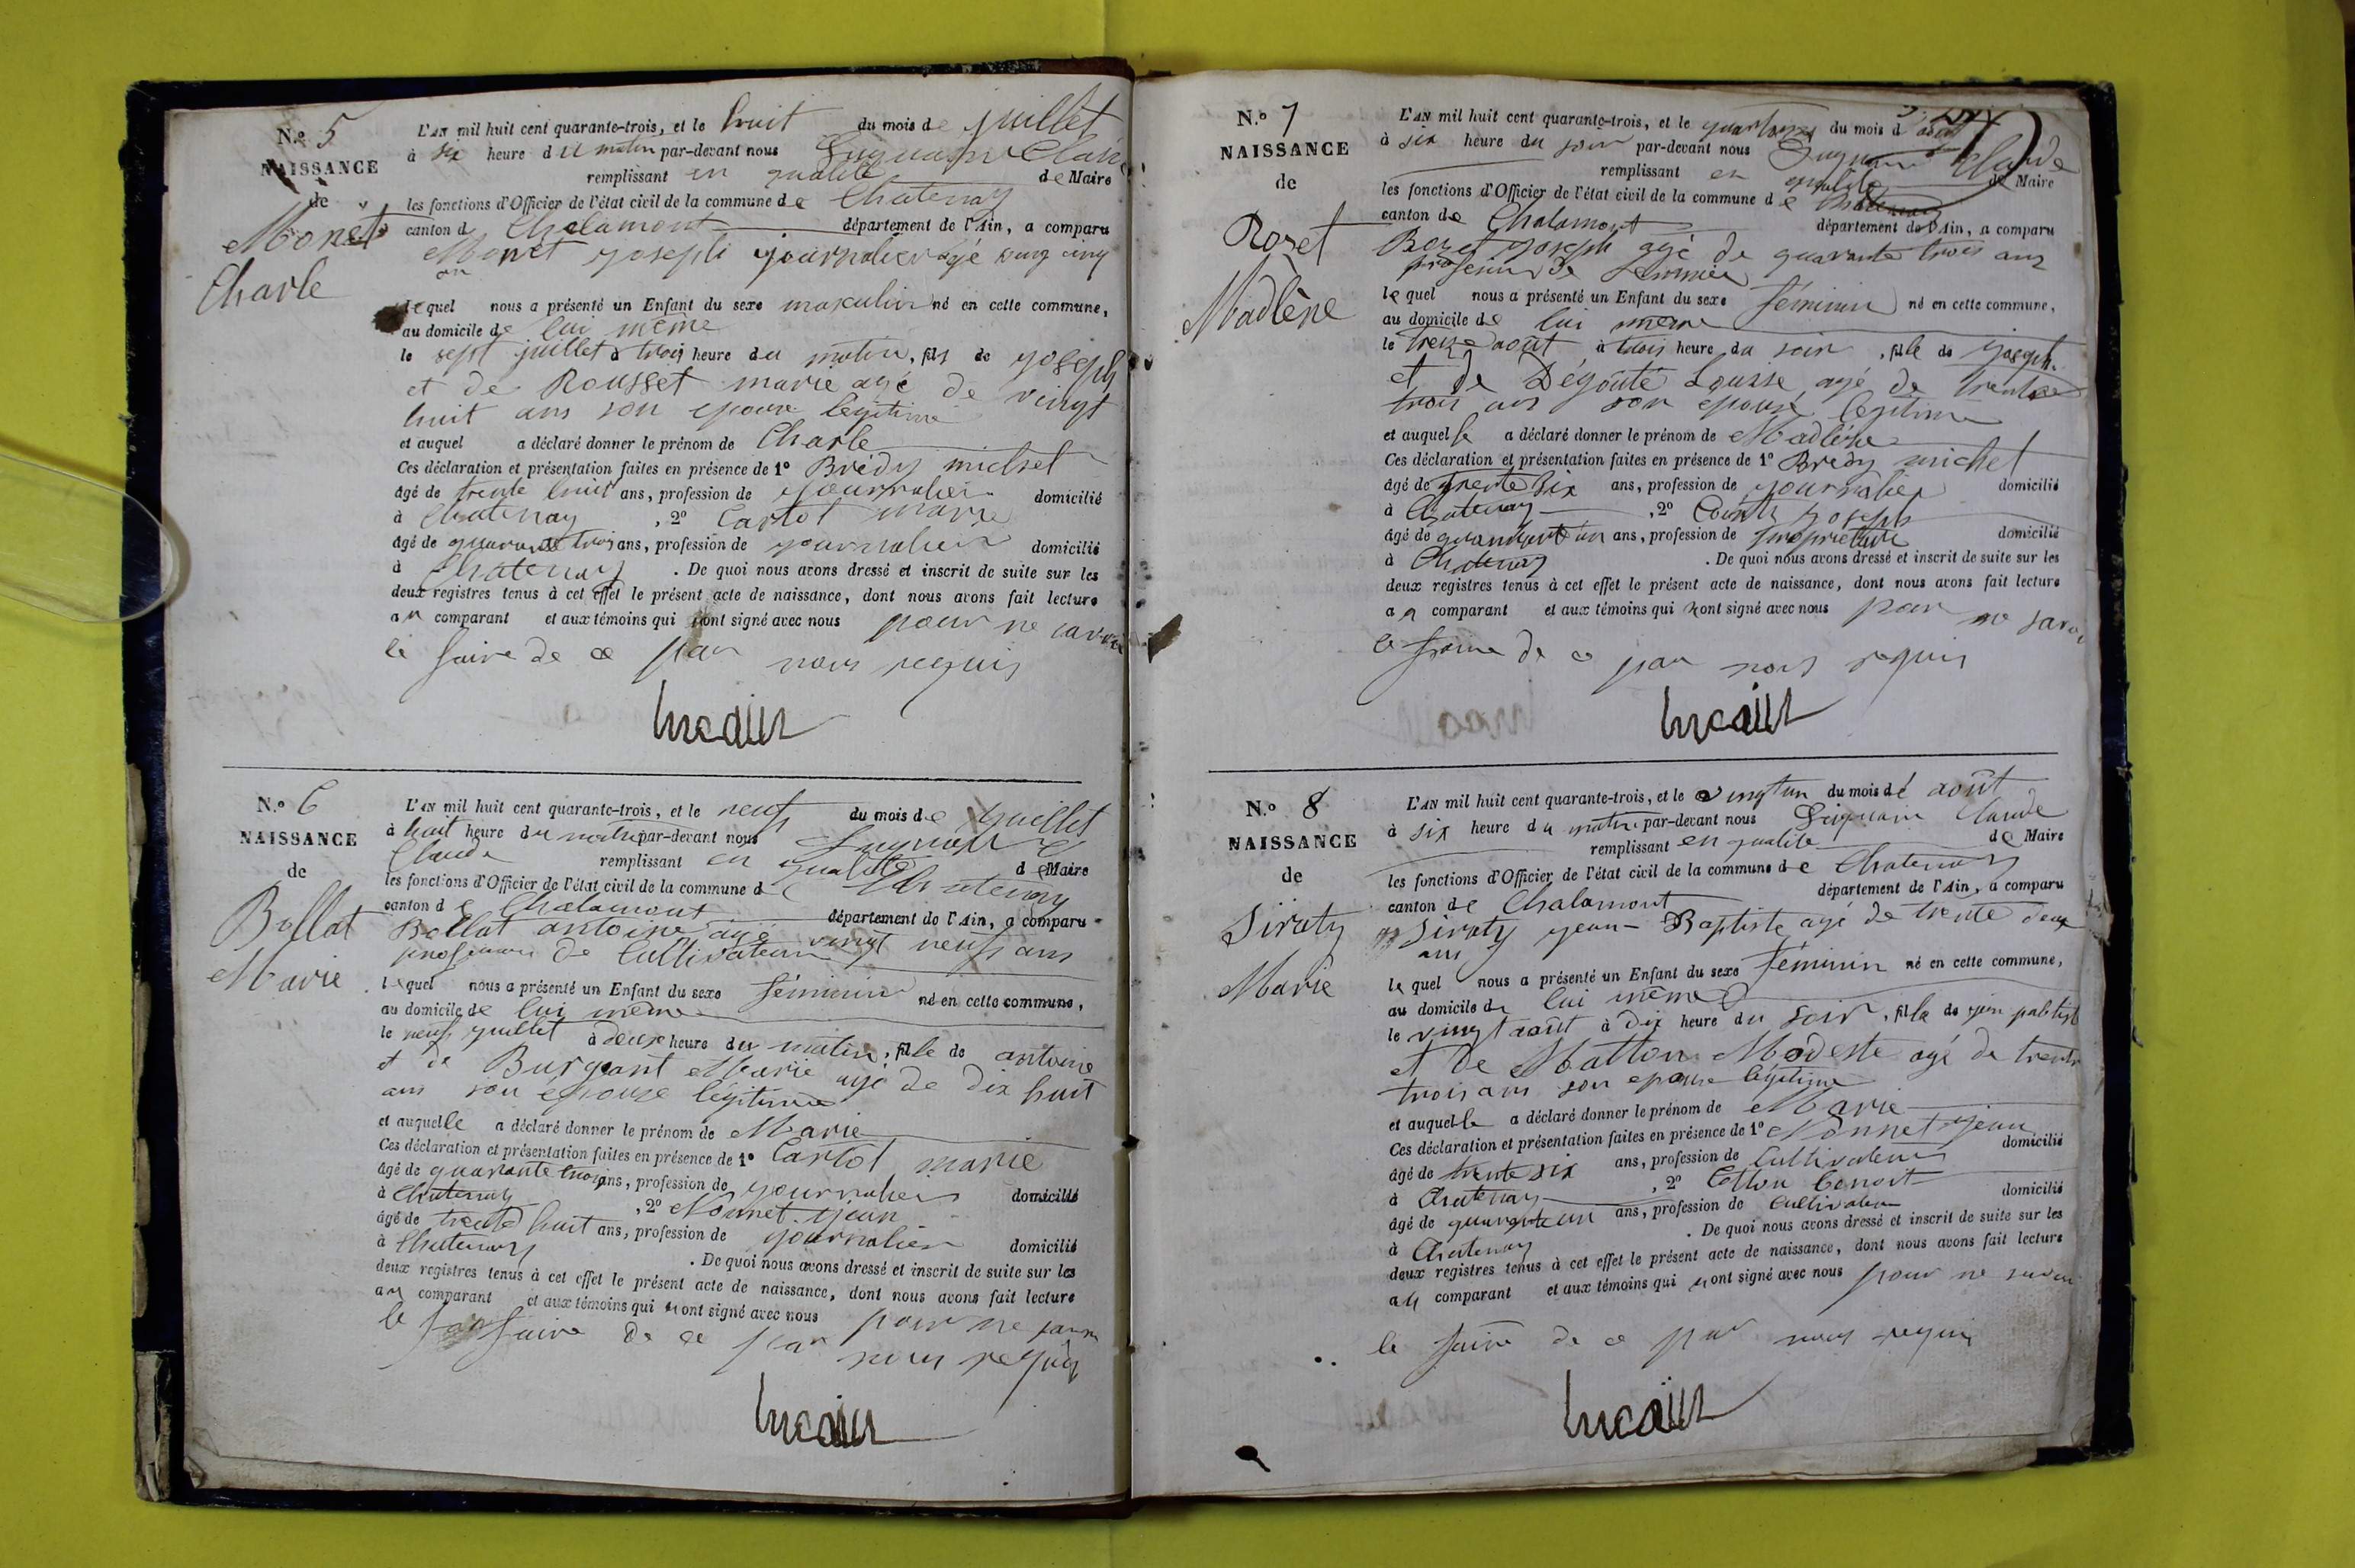 N.o 5
NAISSANCE
de
Monet
Charle
L'AN mil huit cent quarante-trois, et le huit du mois de juillet
à six heure du matin par-devant nous
remplissant en qualité de Maire
les fonctions d'Officier de l'état civil de la commune de Chatenay
canton d Chalamont département de l'Ain, a comparu
Monet joseph journalier agé
an
lequel nous a présenté un Enfant du sexe masculin né en cette commune,
au domicile de lui même
le sept juillet à trois heure du matin, fils de joseph
et de Rousset marie agé de vingt
huit ans son epouse legitime
et auquel a déclaré donner le prénom de Charle
Ces déclaration et présentation faites en présence de 1º Brédy michel
âgé de trente huit ans, profession de journalier domicilié
à Chatenay , 2º Cartot marie
âgé de quarante trois ans, profession de journalier domicilié
à Chatenay . De quoi nous avons dressé et inscrit de suite sur les
deux registres tenus à cet effet le présent acte de naissance, dont nous avons fait lecture
au comparant et aux témoins qui nont signé avec nous pour ne savoir
le faire de ce par nous requis
N.o 6
NAISSANCE
de
Bollat
Marie
L'AN mil huit cent quarante-trois, et le neuf du mois de juillet
à huit heure du matin par-devant nous
Claude remplissant en qualité de Maire
les fonctions d'Officier de l'état civil de la commune de Chatenay
canton de Chalamont département de l'Ain, a comparu
Bollat antoine agé vingt neuf ans
profession de Cultivateur
lequel nous a présenté un Enfant du sexe féminin né en cette commune,
au domicile de lui même
le neuf juillet à deux heure du matin, fille de antoine
et de Burgeant Marie agé de dix huit
ans son épouse légitime
et auquelle a déclaré donner le prénom de Marie
Ces déclaration et présentation faites en présence de 1º Cartot marie
âgé de quarante trois ans, profession de journalier domicilié
à Chatenay , 2º Monnet jean
âgé de trente huit ans, profession de journalier domicilié
à Chatenay . De quoi nous avons dressé et inscrit de suite sur les
deux registres tenus à cet effet le présent acte de naissance, dont nous avons fait lecture
au comparant et aux témoins qui nont signé avec nous pour ne savoir
le faire de ce par nous requis
N.o 7
NAISSANCE
de
Rozet
Madlène
L'AN mil huit cent quarante-trois, et le quartorze du mois d'août
à six heure du soir par-devant nous Claude
remplissant en qualité de Maire
les fonctions d'Officier de l'état civil de la commune de Chatenay
canton de Chalamont département de l'Ain, a comparu
Rozet joseph agé de quarante trois ans
profession de fermier
lequel nous a présenté un Enfant du sexe féminin né en cette commune,
au domicile de lui même
le treize août à trois heure du soir, fille de joseph
et de Dégoûté Louise agé de trente
trois ans son epouse legitime
et auquelle a déclaré donner le prénom de Madlène
Ces déclaration et présentation faites en présence de 1º Brédy michel
âgé de trente six ans, profession de journalier domicilié
à Chatenay , 2º joseph
âgé de quarante un ans, profession de propriétaire domicilié
à Chatenay . De quoi nous avons dressé et inscrit de suite sur les
deux registres tenus à cet effet le présent acte de naissance, dont nous avons fait lecture
au comparant et aux témoins qui nont signé avec nous pour ne savoir
le faire de ce par nous requis
N.o 8
NAISSANCE
de
Siraty
Marie
L'AN mil huit cent quarante-trois, et le vingt un du mois dé août
à six heure du matin par-devant nous Claude
remplissant en qualité de Maire
les fonctions d'Officier de l'état civil de la commune de Chatenay
canton de Chalamont département de l'Ain, a comparu
Siraty jean-Baptiste agé de trente deux
ans
lequel nous a présenté un Enfant du sexe féminin né en cette commune,
au domicile de lui même
le vingt août à dix heure du soir, fille de jean
et de Matton Modeste agé de trente
trois ans son epouse légitime
et auquelle a déclaré donner le prénom de Marie
Ces déclaration et présentation faites en présence de 1º Monnet jean
âgé de trente six ans, profession de Cultivateur domicilié
à Chatenay , 2º benoit
âgé de quarante un ans, profession de Cultivateur domicilié
à Chatenay . De quoi nous avons dressé et inscrit de suite sur les
deux registres tenus à cet effet le présent acte de naissance, dont nous avons fait lecture
au comparant et aux témoins qui nont signé avec nous pour ne savoir
le faire de ce par nous requis